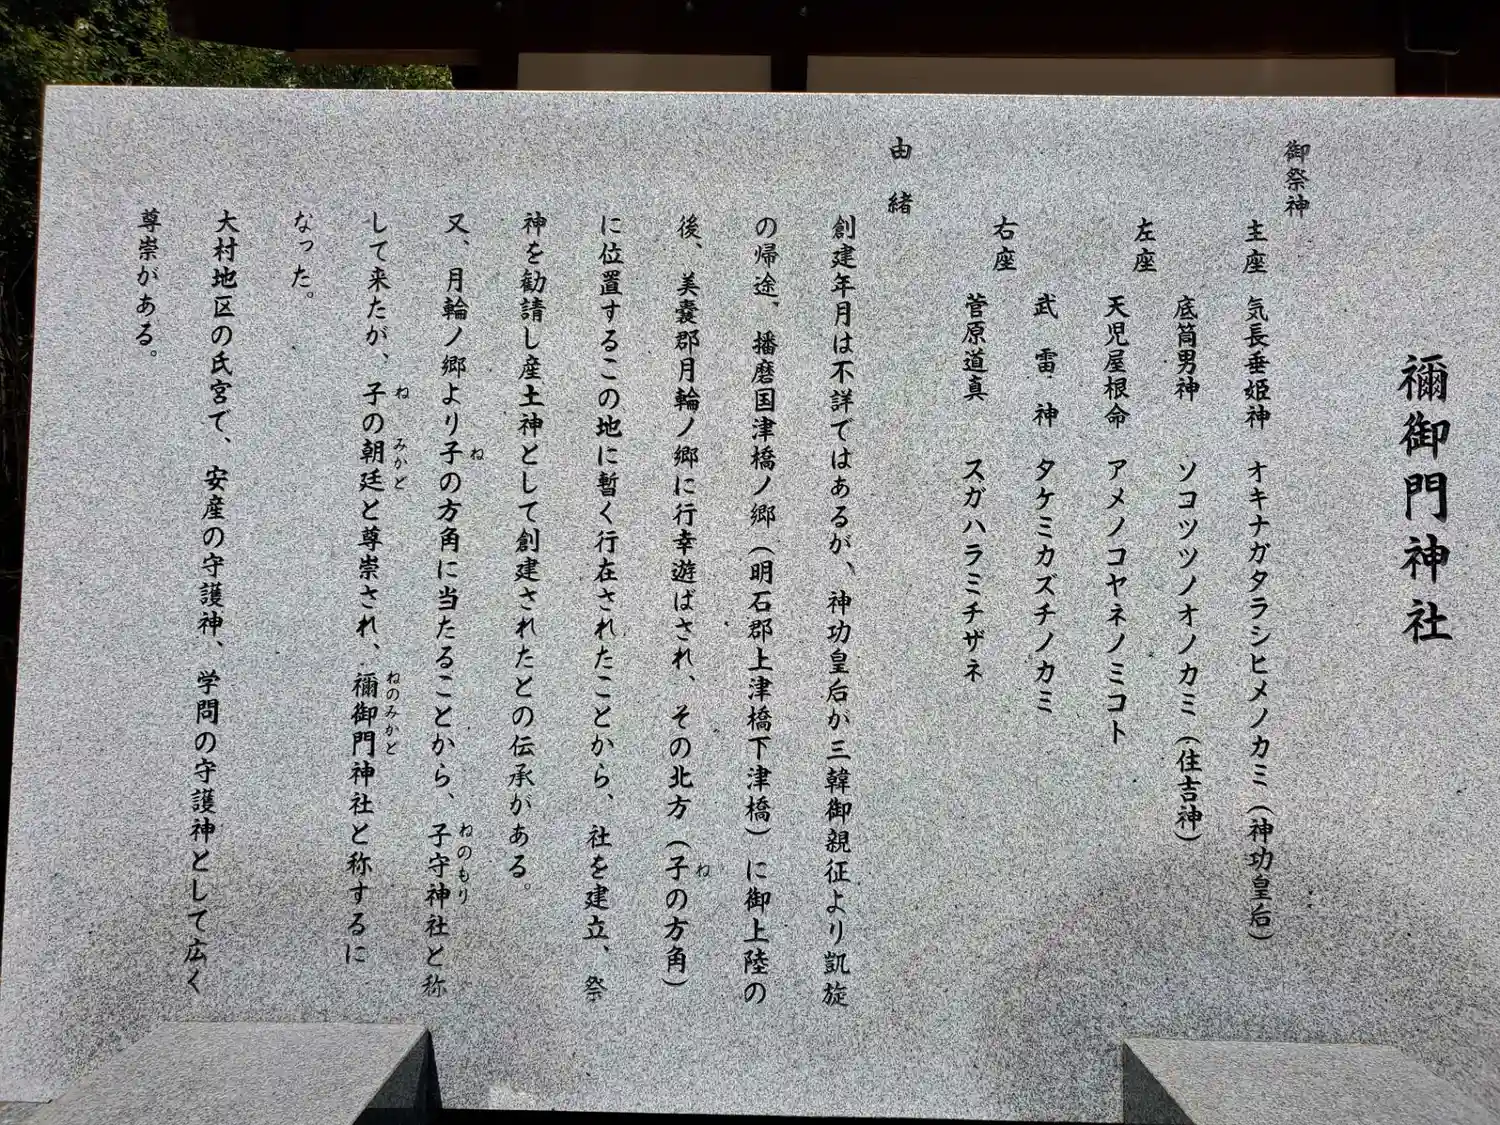 禰御門神社
御祭神
主座 気長垂姫神 オキナガタラシヒメノカミ(神功皇后)
底筒男神 ソコツツノオノカミ(住吉神)
左座 天児屋根命 アメノコヤネノミコト
武雷神 タケミカズチノカミ
右座 菅原道真 スガハラミチザネ
由緒
創建年月は不詳ではあるが、神功皇后が三韓御親征より凱旋
の帰途、播磨国津橋ノ郷(明石郡上津橋下津橋)に御上陸の
後、美嚢郡月輪ノ郷に行幸遊ばされ、その北方(子の方角)
に位置するこの地に暫く行在されたことから、社を建立、祭
神を勧請し産土神として創建されたとの伝承がある。
又、月輪ノ郷より子の方角に当たることから、子守神社と称
して来たが、子の朝廷と尊崇され、禰御門神社と称するに
なった。
大村地区の氏宮で、安産の守護神、学問の守護神として広く
尊崇がある。